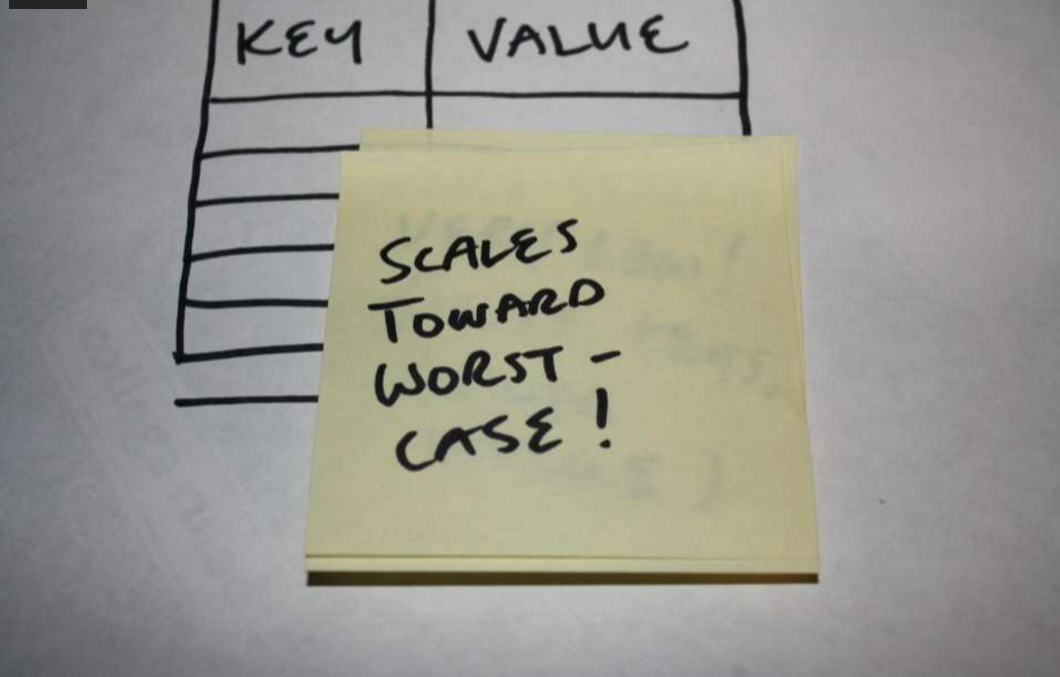 KEY VALUE
SCALES
TOWARD
WORST-
CASE!